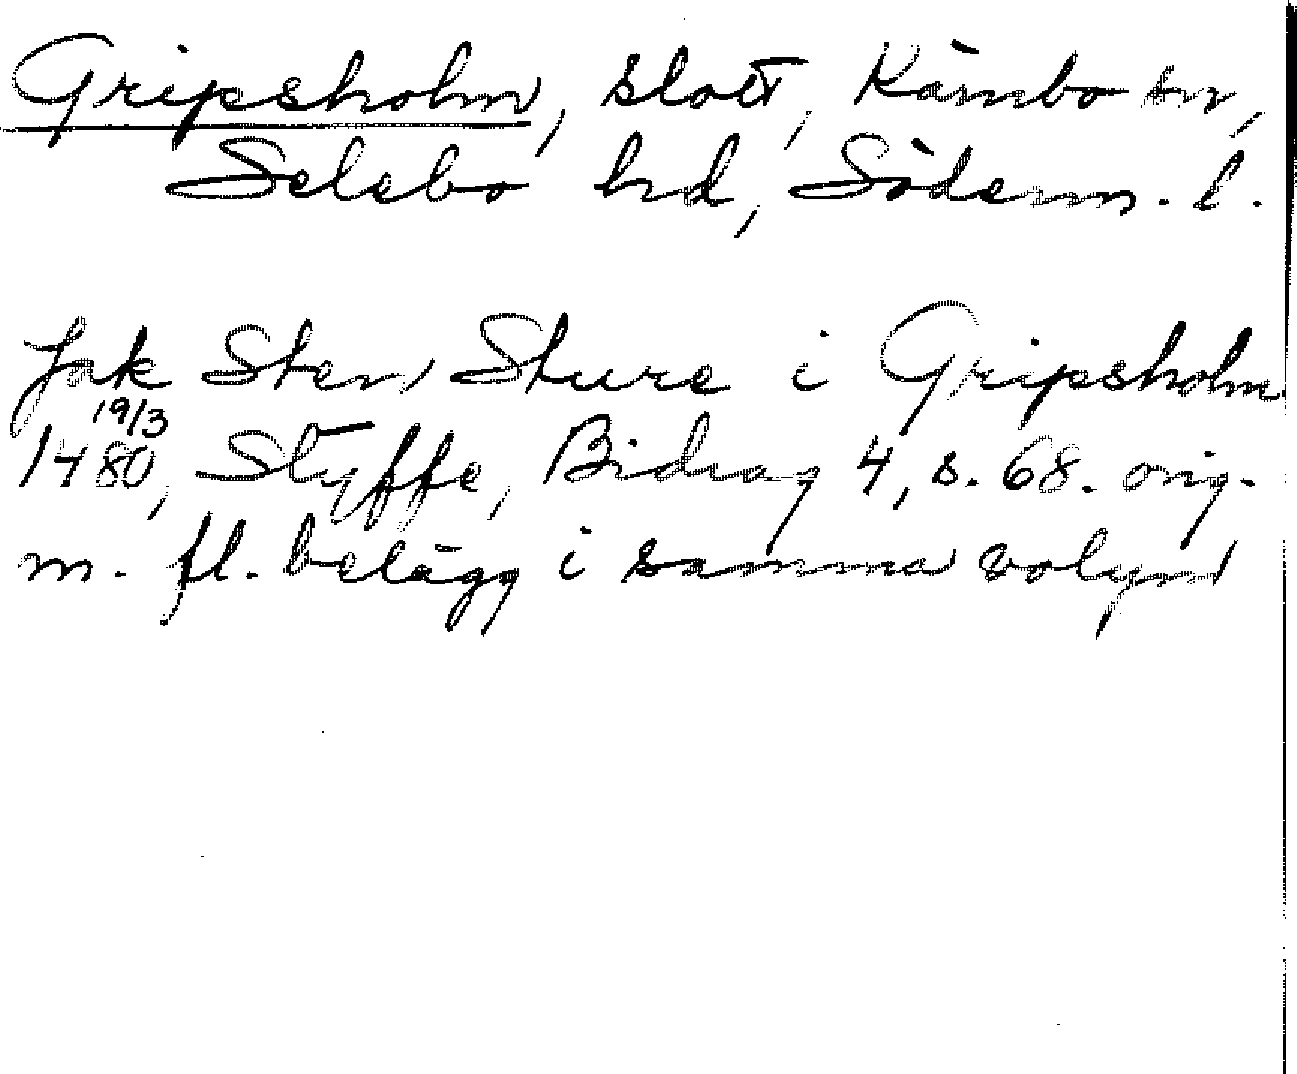 Gripsholm, slott, Kärnbo sn,
Selebo hd, Söderm. l.
Jak Sten Sture i Gripsholm
19/3
1480, Styffe, Bidrag 4, s. 68. orig.
m. fl. belägg i samma volym